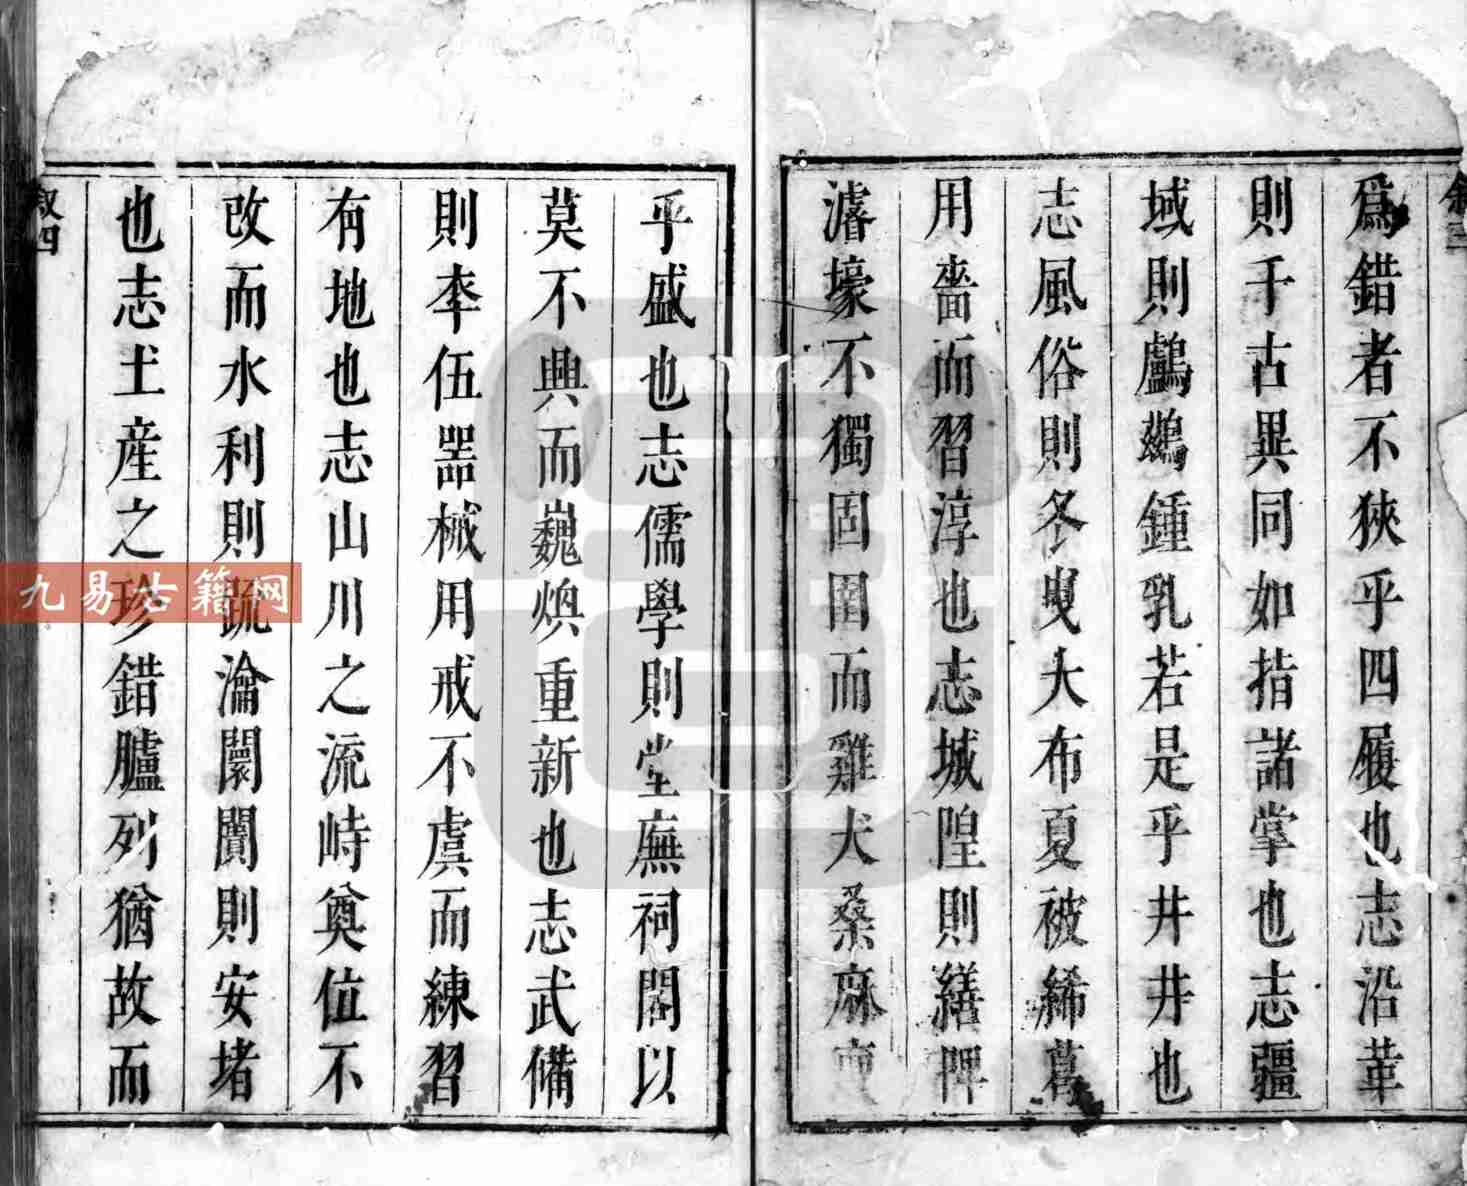 敘三
爲錯者不狹乎四履也志沿革
則千古異同如指諸掌也志疆
域則鸕鷀鍾乳若是乎井井也
志風俗則冬曳大布夏被絺葛
用嗇而習淳也志城隍則繕陴
濬壕不獨固圉而雞犬桑麻
乎盛也志儒學則堂廡祠閣以
莫不興而巍煥重新也志武備
則李伍器械用戒不虞而練習
有地也志山川之流峙奠位不
改而水利則疏瀹闤闠則安堵
也志土産之珍錯臚列猶故而
敘四
九易古籍网